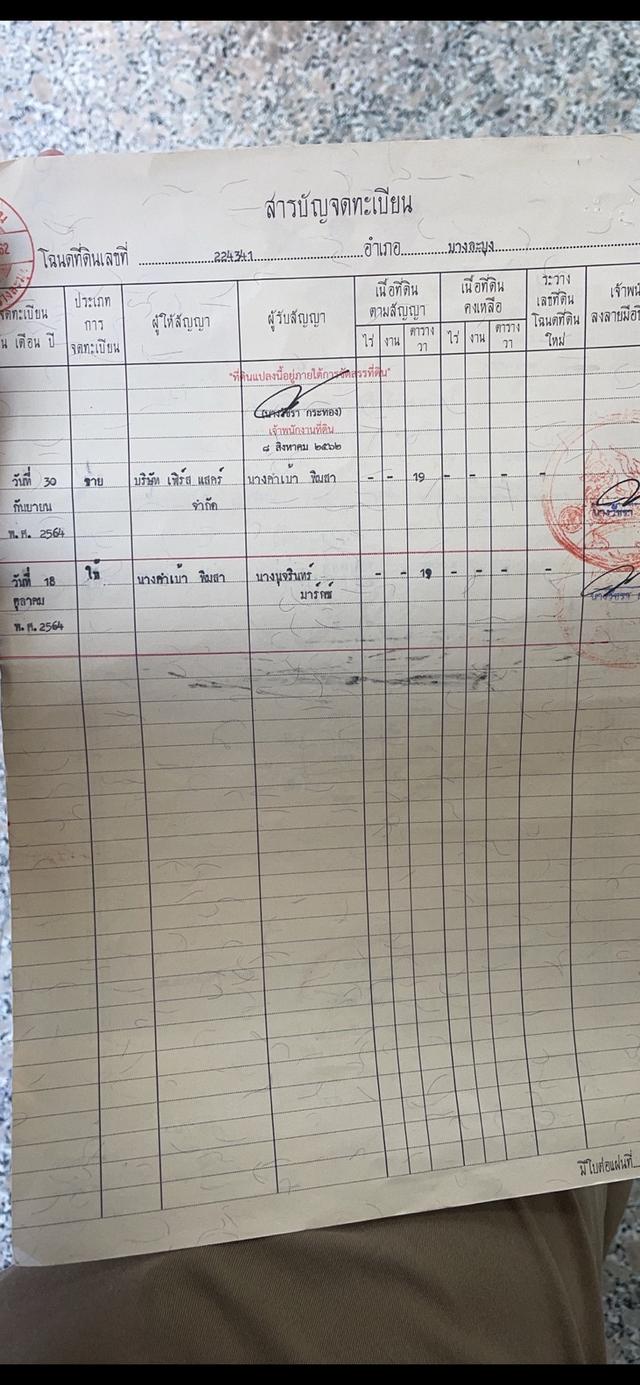 สารบัญจดทะเบียน
โฉนดที่ดินเลขที่ 224341 อำเภอ บางละมุง
จดทะเบียน
น เดือน ปี
ประเภท
การ
จดทะเบียน
ผู้ให้สัญญา
ผู้รับสัญญา
เนื้อที่ดิน
ตามสัญญา
ไร่ งาน ตาราง
วา
เนื้อที่ดิน
คงเหลือ
ไร่ งาน ตาราง
วา
ระวาง
เลขที่ดิน
โฉนดที่ดิน
ใหม่
เจ้าพนั
ลงลายมือชื
"ที่ดินแปลงนี้อยู่ภายใต้การจัดสรรที่ดิน"
กระทอง)
เจ้าพนักงานที่ดิน
๘ สิงหาคม ๒๕๖๒
วันที่ 30 ขาย บริษัท เฟิร์ส แสควร์ นางคำเบ้า พิมสา - - 19 - - - -
กันยายน จำกัด
พ.ศ. 2564
วันที่ 18 ให้ นางคำเบ้า พิมสา นางนุจรินทร์ - - 19 - - - -
ตุลาคม มาร์คซ์
พ.ศ. 2564
มีใบต่อแผ่นที่